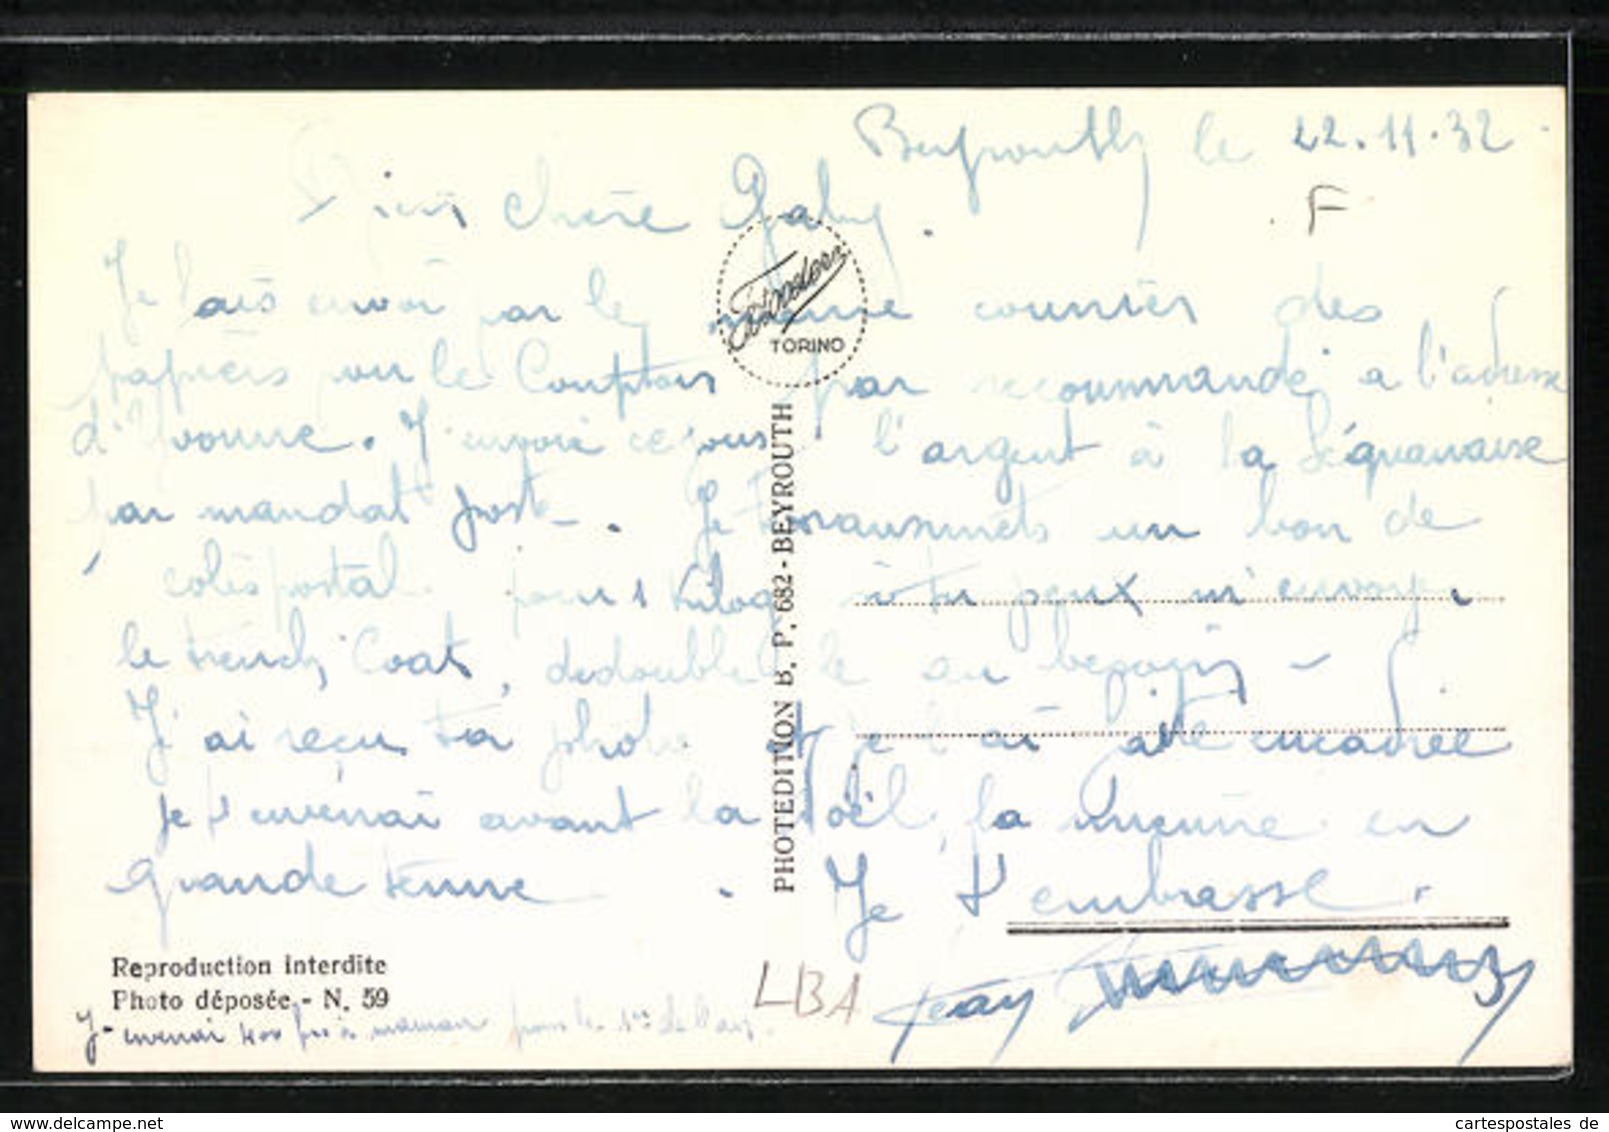 Beyrouth le 22.11.32
F
chère Gaby.
Je envoi par le même courrier des
papiers pour le Comptoir par recommandé a l'adresse
d'Yvonne. J'envoie ce jour l'argent à la Séquanaise
par mandat poste. Je transmets un bon de
colis postal pour 1 Kilog si tu peux m'envoyer
le trench Coat, dedouble le au besoin -
J'ai reçu ta photo et je l'ai encadrée
je t'enverrai avant la Noël, la mienne en
grande tenue. Je t'embrasse.
Jean
J'enverrai 400 frs à maman pour le 1er de l'an.
LBA
TORINO
PHOTEDITION B. P. 682 - BEYROUTH
Reproduction interdite
Photo déposée - N. 59
www.delcampe.net
cartespostales de